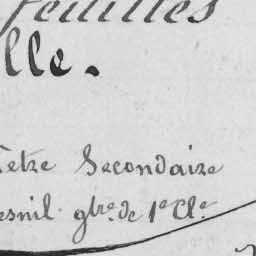 feuilles
lle.
etre Secondaire
esnil. gbre. de 1e Cle.